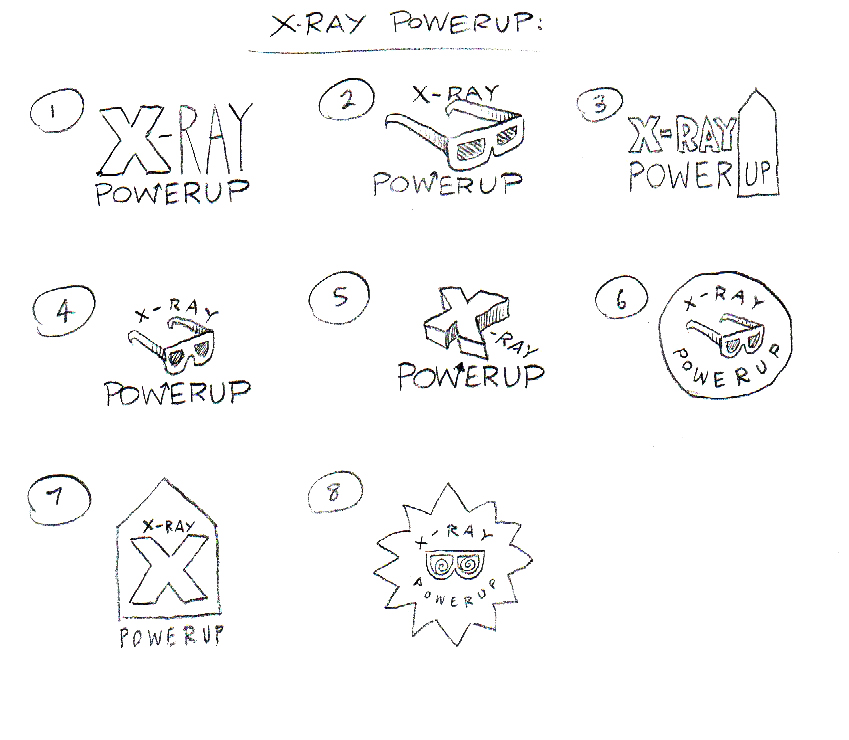 X-RAY POWERUP:
1
X-RAY
POWERUP
2
X-RAY
POWERUP
3
X-RAY
POWER UP
4
X-RAY
POWERUP
5
X-RAY
POWERUP
6
X-RAY
POWERUP
7
X-RAY
X
POWERUP
8
X-RAY
POWERUP